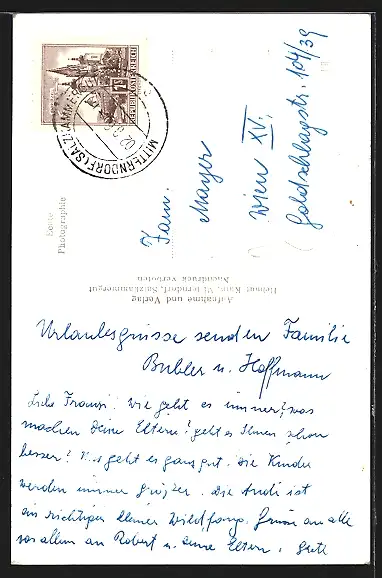 REPUBLIK ÖSTERREICH
MITTERNDORF (SALZKAMMERGUT)
Fam.
Mayer
Wien XV.
Goldschlagstr. 104/39
Echte
Photographie
Aufnahme und Verlag
Mitterndorf, Salzkammergut
Nachdruck verboten
Urlaubsgrüsse senden Familie
Buhler u. Hoffmann
Liebe Franzi! Wie geht es immer? Was
machen Deine Eltern? geht es Ihnen schon
besser? Uns geht es ganz gut. Die Kinder
werden immer größer. Die Andi ist
ein richtiger kleiner Wildfang. Grüsse an alle
vor allem an Robert u. Deine Eltern. Gretl